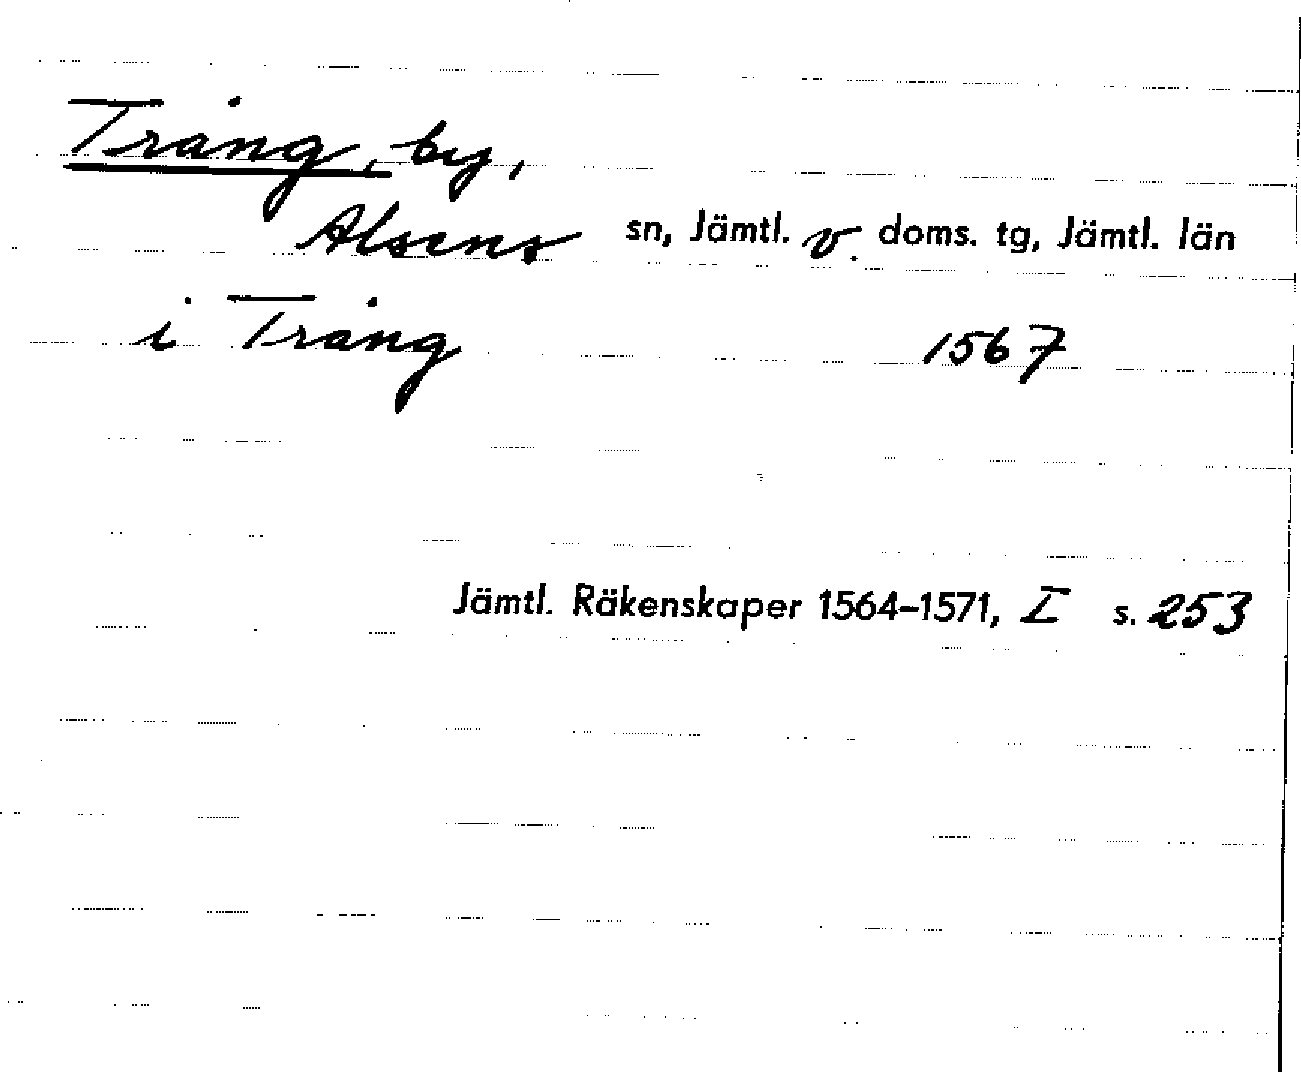 Trång, by,
Alsens sn, Jämtl. v. doms. tg, Jämtl. län
i Trång 1567
Jämtl. Räkenskaper 1564–1571, I s. 253